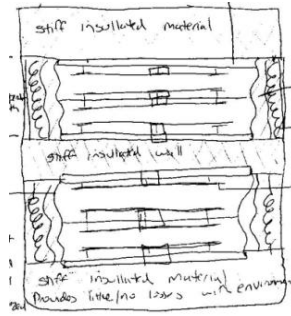 stiff insullated material
stiff insullated wall
stiff insullated material
Provides little/no losses with environm